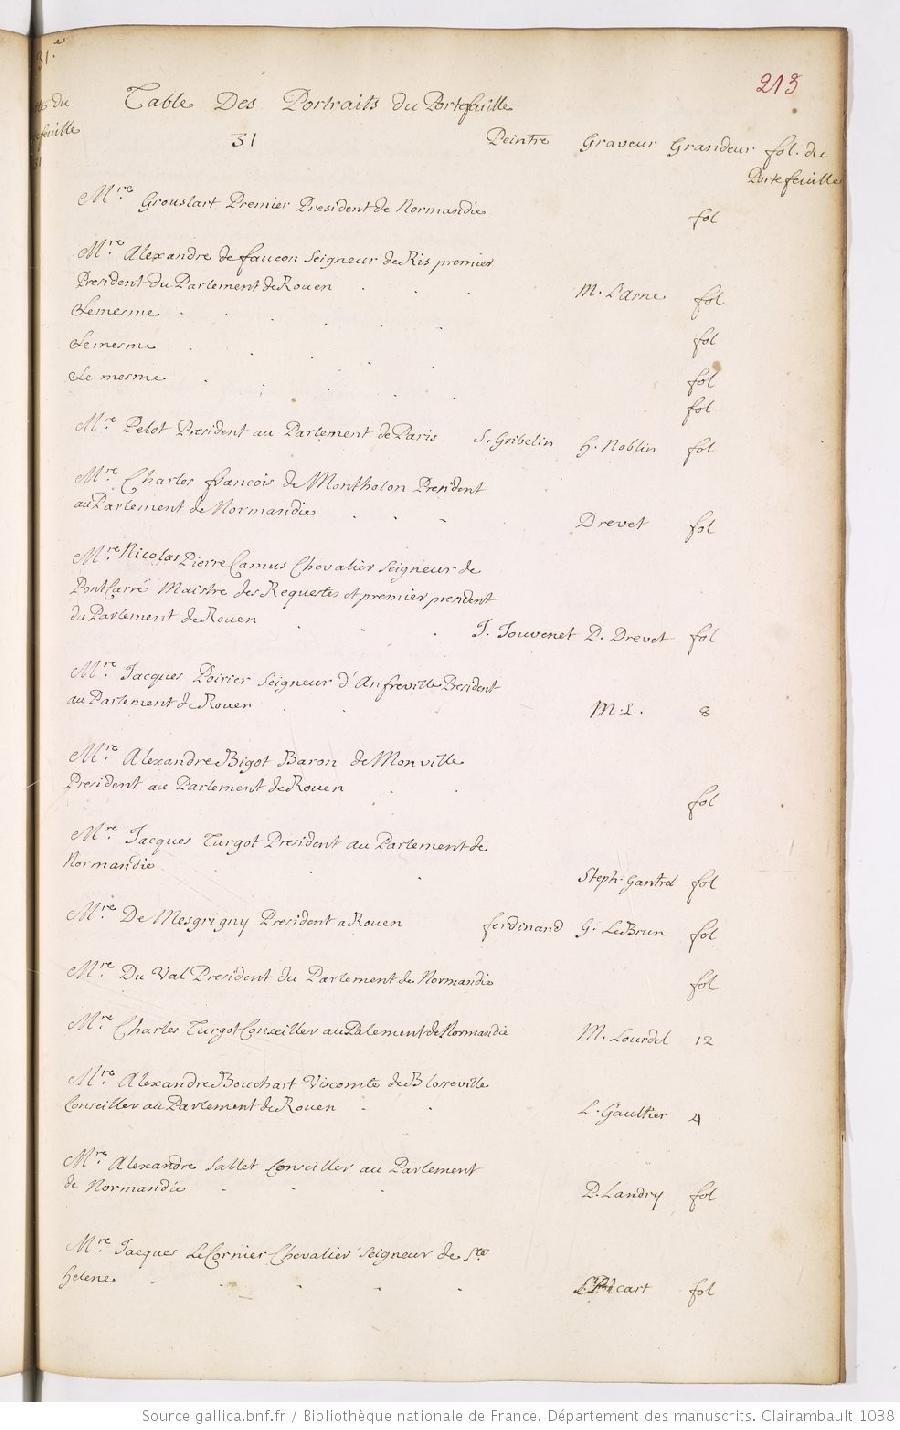 31.e
213
Table Des Portraits du Portefeuille
31
Peintre Graveur Grandeur fol. du
Portefeuille
Mre. Grouslart Premier President de Normandie fol
Mre. Alexandre de faucon Seigneur de Ris premier
President du Parlement de Rouen . . . M. Lasne fol
Le mesme . . . . . fol
Le mesme . . . . fol
Le mesme . . . . fol
Mre. Pelot President au Parlement de Paris S. Gribelin H. Noblin fol
Mre. Charles francois de Montholon President
au Parlement de Normandie . . . Drevet fol
Mre. Nicolas Pierre Camus Chevalier Seigneur de
Pont Carré Maistre des Requestes et premier president
du Parlement de Rouen . . . J. Jouvenet P. Drevet fol
Mre. Jacques Poirier Seigneur d'Anfreville President
au Parlement de Rouen . . . M. L. 8
Mre. Alexandre Bigot Baron de Monville
President au Parlement de Rouen . . fol
Mre. Jacques Turgot President au Parlement de
Normandie . . . Steph. Gantrel fol
Mre. De Mesgrigny President a Rouen ferdinand G. LeBrun fol
Mre. Du Val President du Parlement de Normandie fol
Mre. Charles Turgot Conseiller au Palement de Normandie M. Lourdel 12
Mre. Alexandre Bouchart Viscomte de Bloseville
Conseiller au Parlement de Rouen . . L. Gaultier 4
Mre. Alexandre Sallet Conseiller au Parlement
de Normandie . . . P. Landry fol
Mre. Jacques LeCornier Chevalier Seigneur de Ste
Helene . . . . fol
Source gallica.bnf.fr / Bibliothèque nationale de France. Département des manuscrits. Clairambault 1038